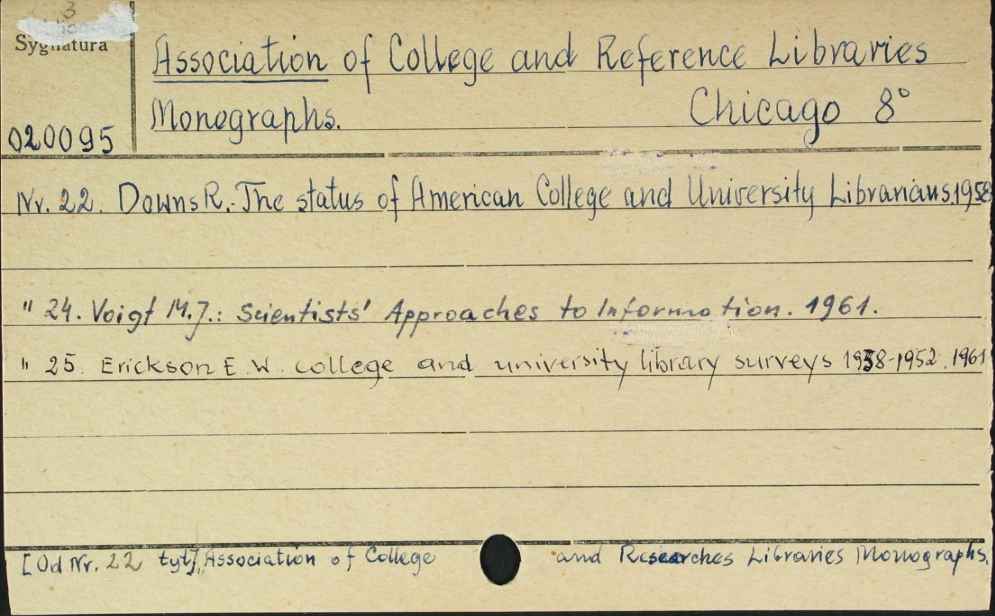 3
Sygnatura
Association of College and Reference Libraries
Monographs. Chicago 8°
020095
Nr. 22. Downs R.- The status of American College and University Librarians. 1958
" 24. Voigt M.J.: Scientists' Approaches to Information. 1961.
" 25. Erickson E. W. college and university library surveys 1938-1952. 1961
[Od Nr. 22 tyt.] Association of College and Researches Libraries Monographs.